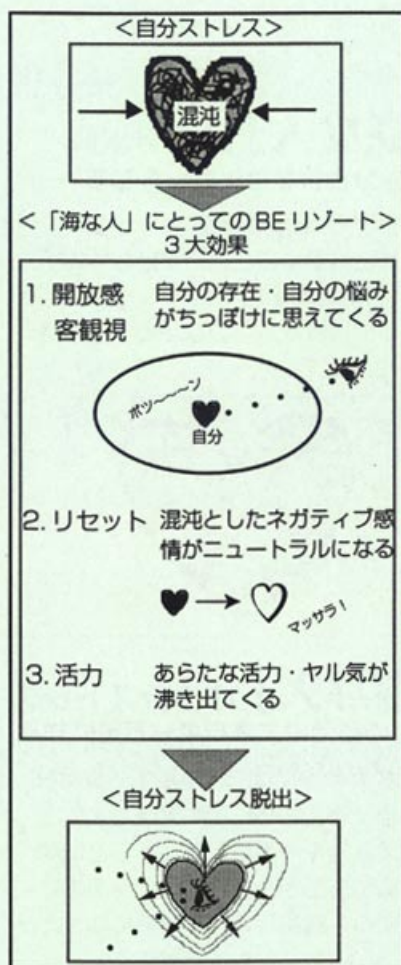 <自分ストレス>
混沌
<「海な人」にとってのBEリゾート>
3大効果
1. 開放感 自分の存在・自分の悩み
客観視 がちっぽけに思えてくる
ポツ〜〜〜ン
自分
2. リセット 混沌としたネガティブ感
情がニュートラルになる
マッサラ!
3. 活力 あらたな活力・ヤル気が
沸き出てくる
<自分ストレス脱出>